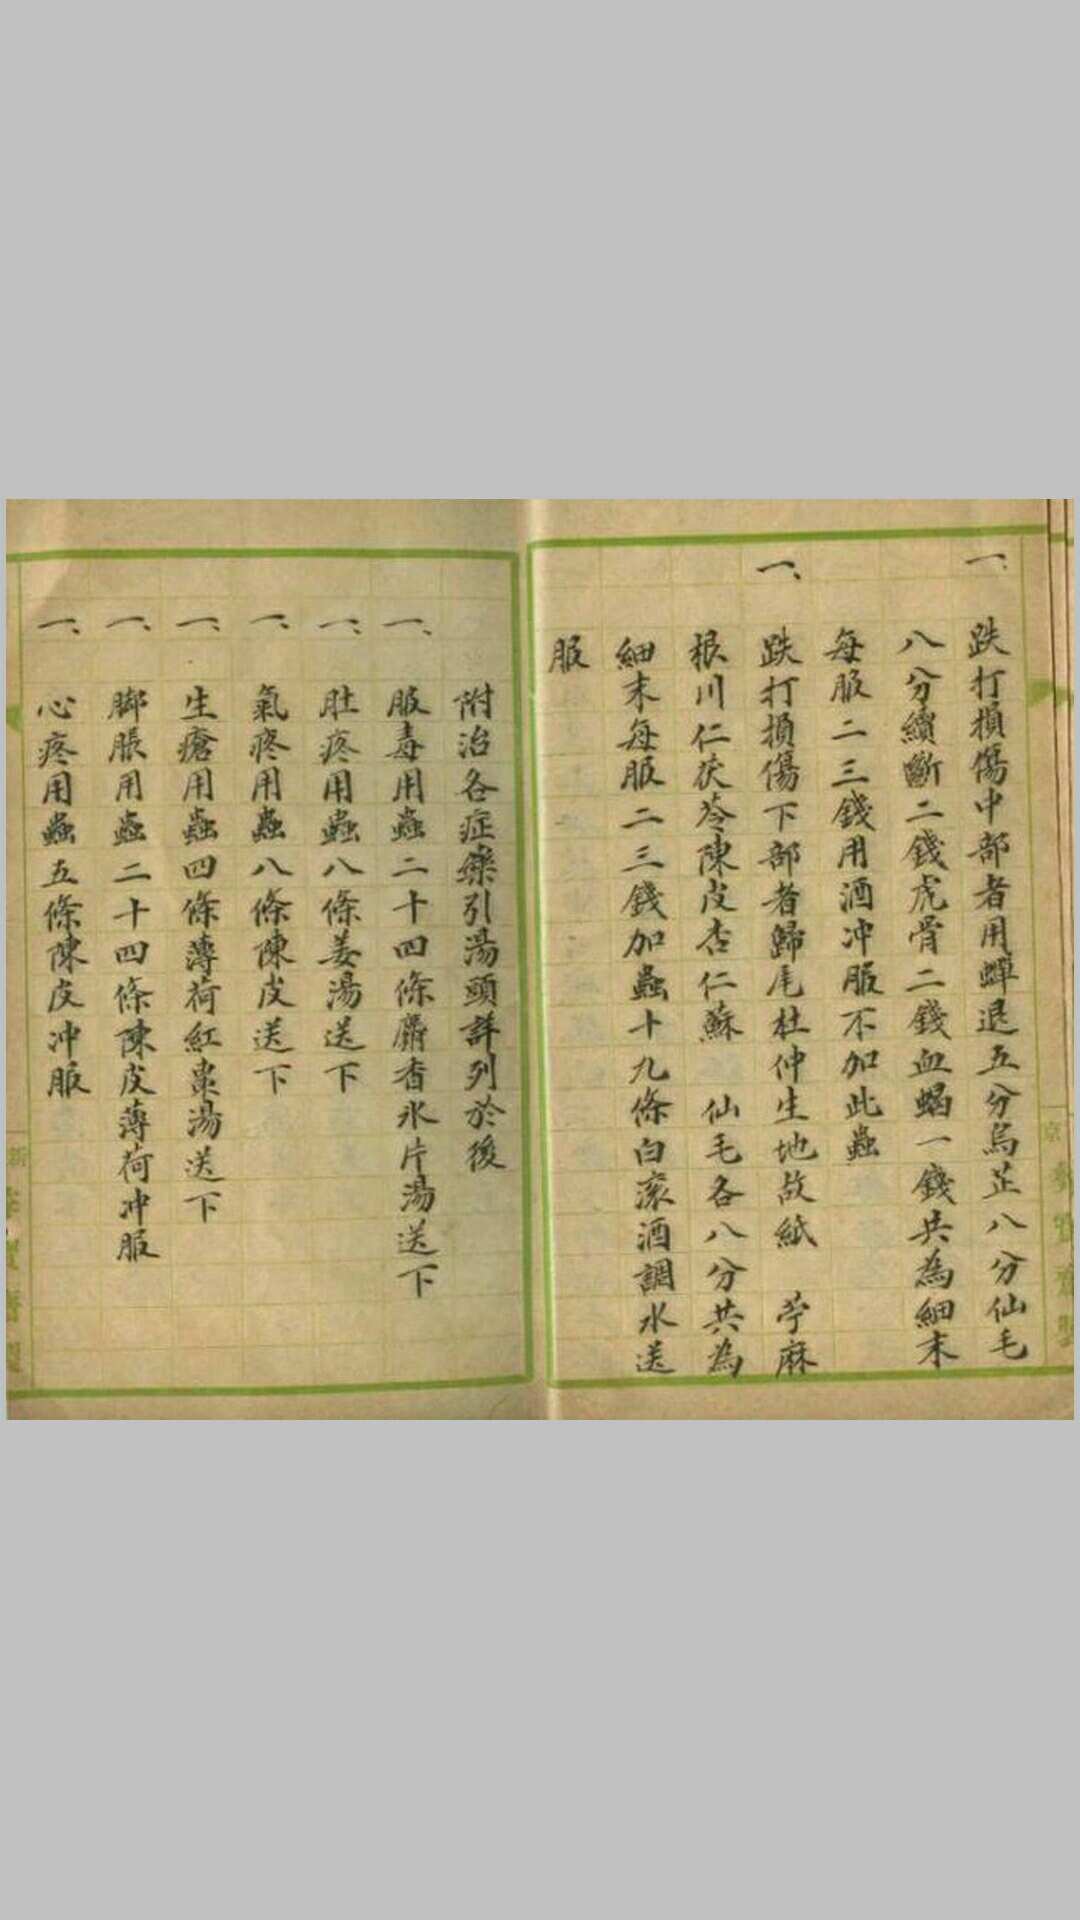 一、跌打損傷中部者用蟬退五分烏芷八分仙毛
八分續斷二錢虎骨二錢血蝎一錢共為細末
每服二三錢用酒冲服不加此蟲
一、跌打損傷下部者歸尾杜仲生地故紙 苧麻
根川仁茯苓陳皮杏仁蘇 仙毛各八分共為
細末每服二三錢加蟲十九條白滚酒調水送
服
附治各症藥引湯頭詳列於後
一、服毒用蟲二十四條麝香氷片湯送下
一、肚疼用蟲八條姜湯送下
一、氣疼用蟲八條陳皮送下
一、生瘡用蟲四條薄荷紅棗湯送下
一、脚脹用蟲二十四條陳皮薄荷冲服
一、心疼用蟲五條陳皮冲服